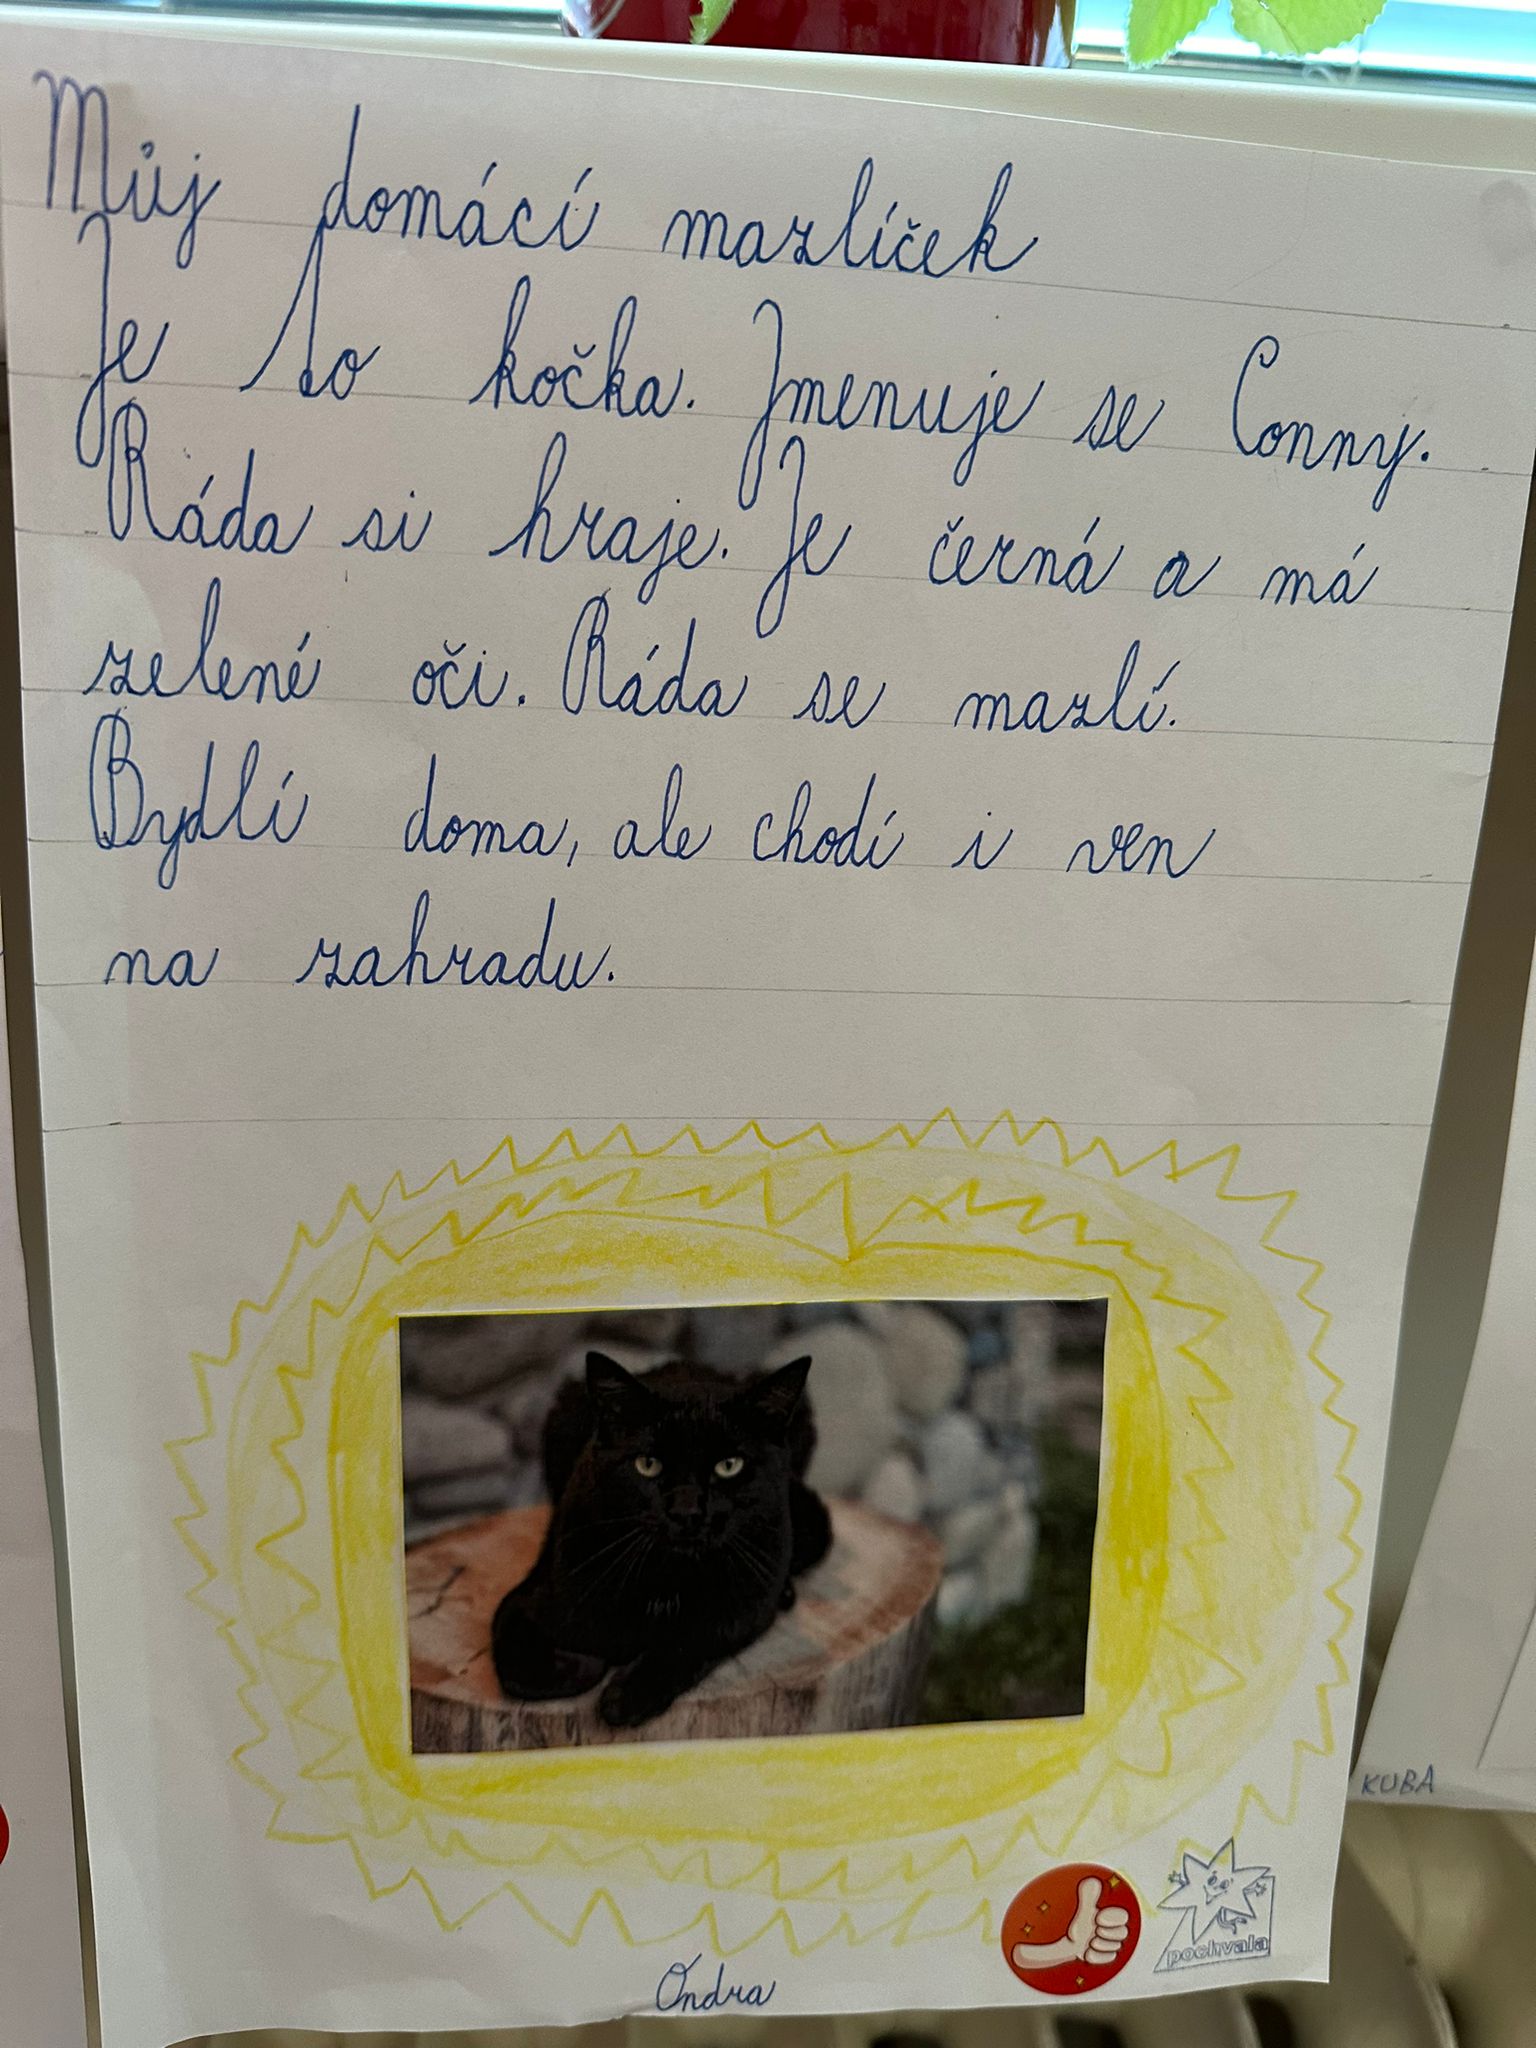 Můj domácí mazlíček
Je to kočka. Jmenuje se Conny.
Ráda si hraje. Je černá a má
zelené oči. Ráda se mazlí.
Bydlí doma, ale chodí i ven
na zahradu.
KUBA
pochvala
Ondra